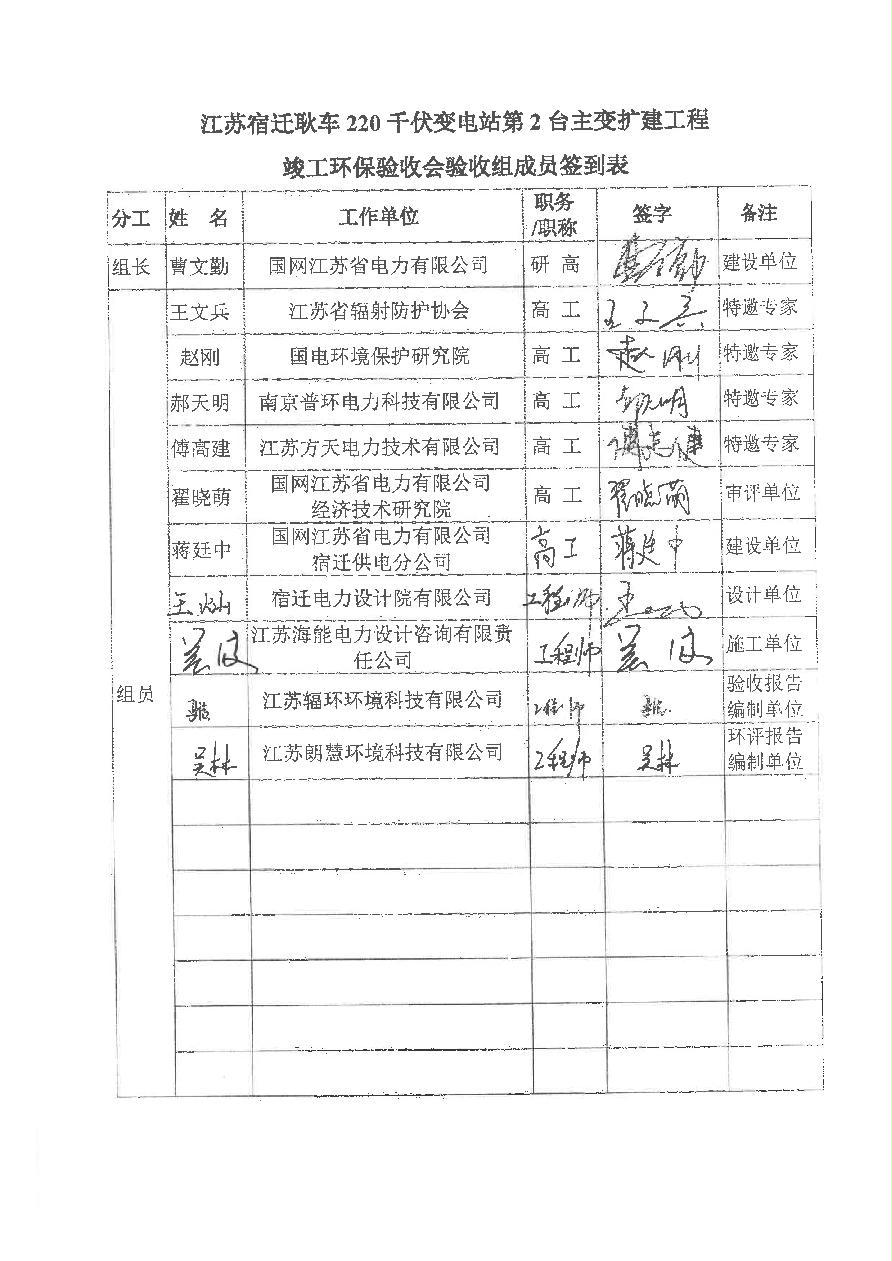 江苏宿迁耿车 220 千伏变电站第 2 台主变扩建工程
竣工环保验收会验收组成员签到表
分工 姓 名 工作单位 职务/职称 签字 备注
组长 曹文勤 国网江苏省电力有限公司 研 高 曹文勤 建设单位
王文兵 江苏省辐射防护协会 高 工 王文兵 特邀专家
赵刚 国电环境保护研究院 高 工 赵刚 特邀专家
郝天明 南京普环电力科技有限公司 高 工 郝天明 特邀专家
傅高建 江苏方天电力技术有限公司 高 工 特邀专家
翟晓萌 国网江苏省电力有限公司 高 工 翟晓萌 审评单位
经济技术研究院
蒋廷中 国网江苏省电力有限公司 高工 蒋廷中 建设单位
宿迁供电分公司
王灿 宿迁电力设计院有限公司 工程师 设计单位
江苏海能电力设计咨询有限责 工程师 施工单位
任公司
组员
江苏辐环环境科技有限公司 工程师 验收报告
编制单位
吴林 江苏朗慧环境科技有限公司 工程师 吴林 环评报告
编制单位